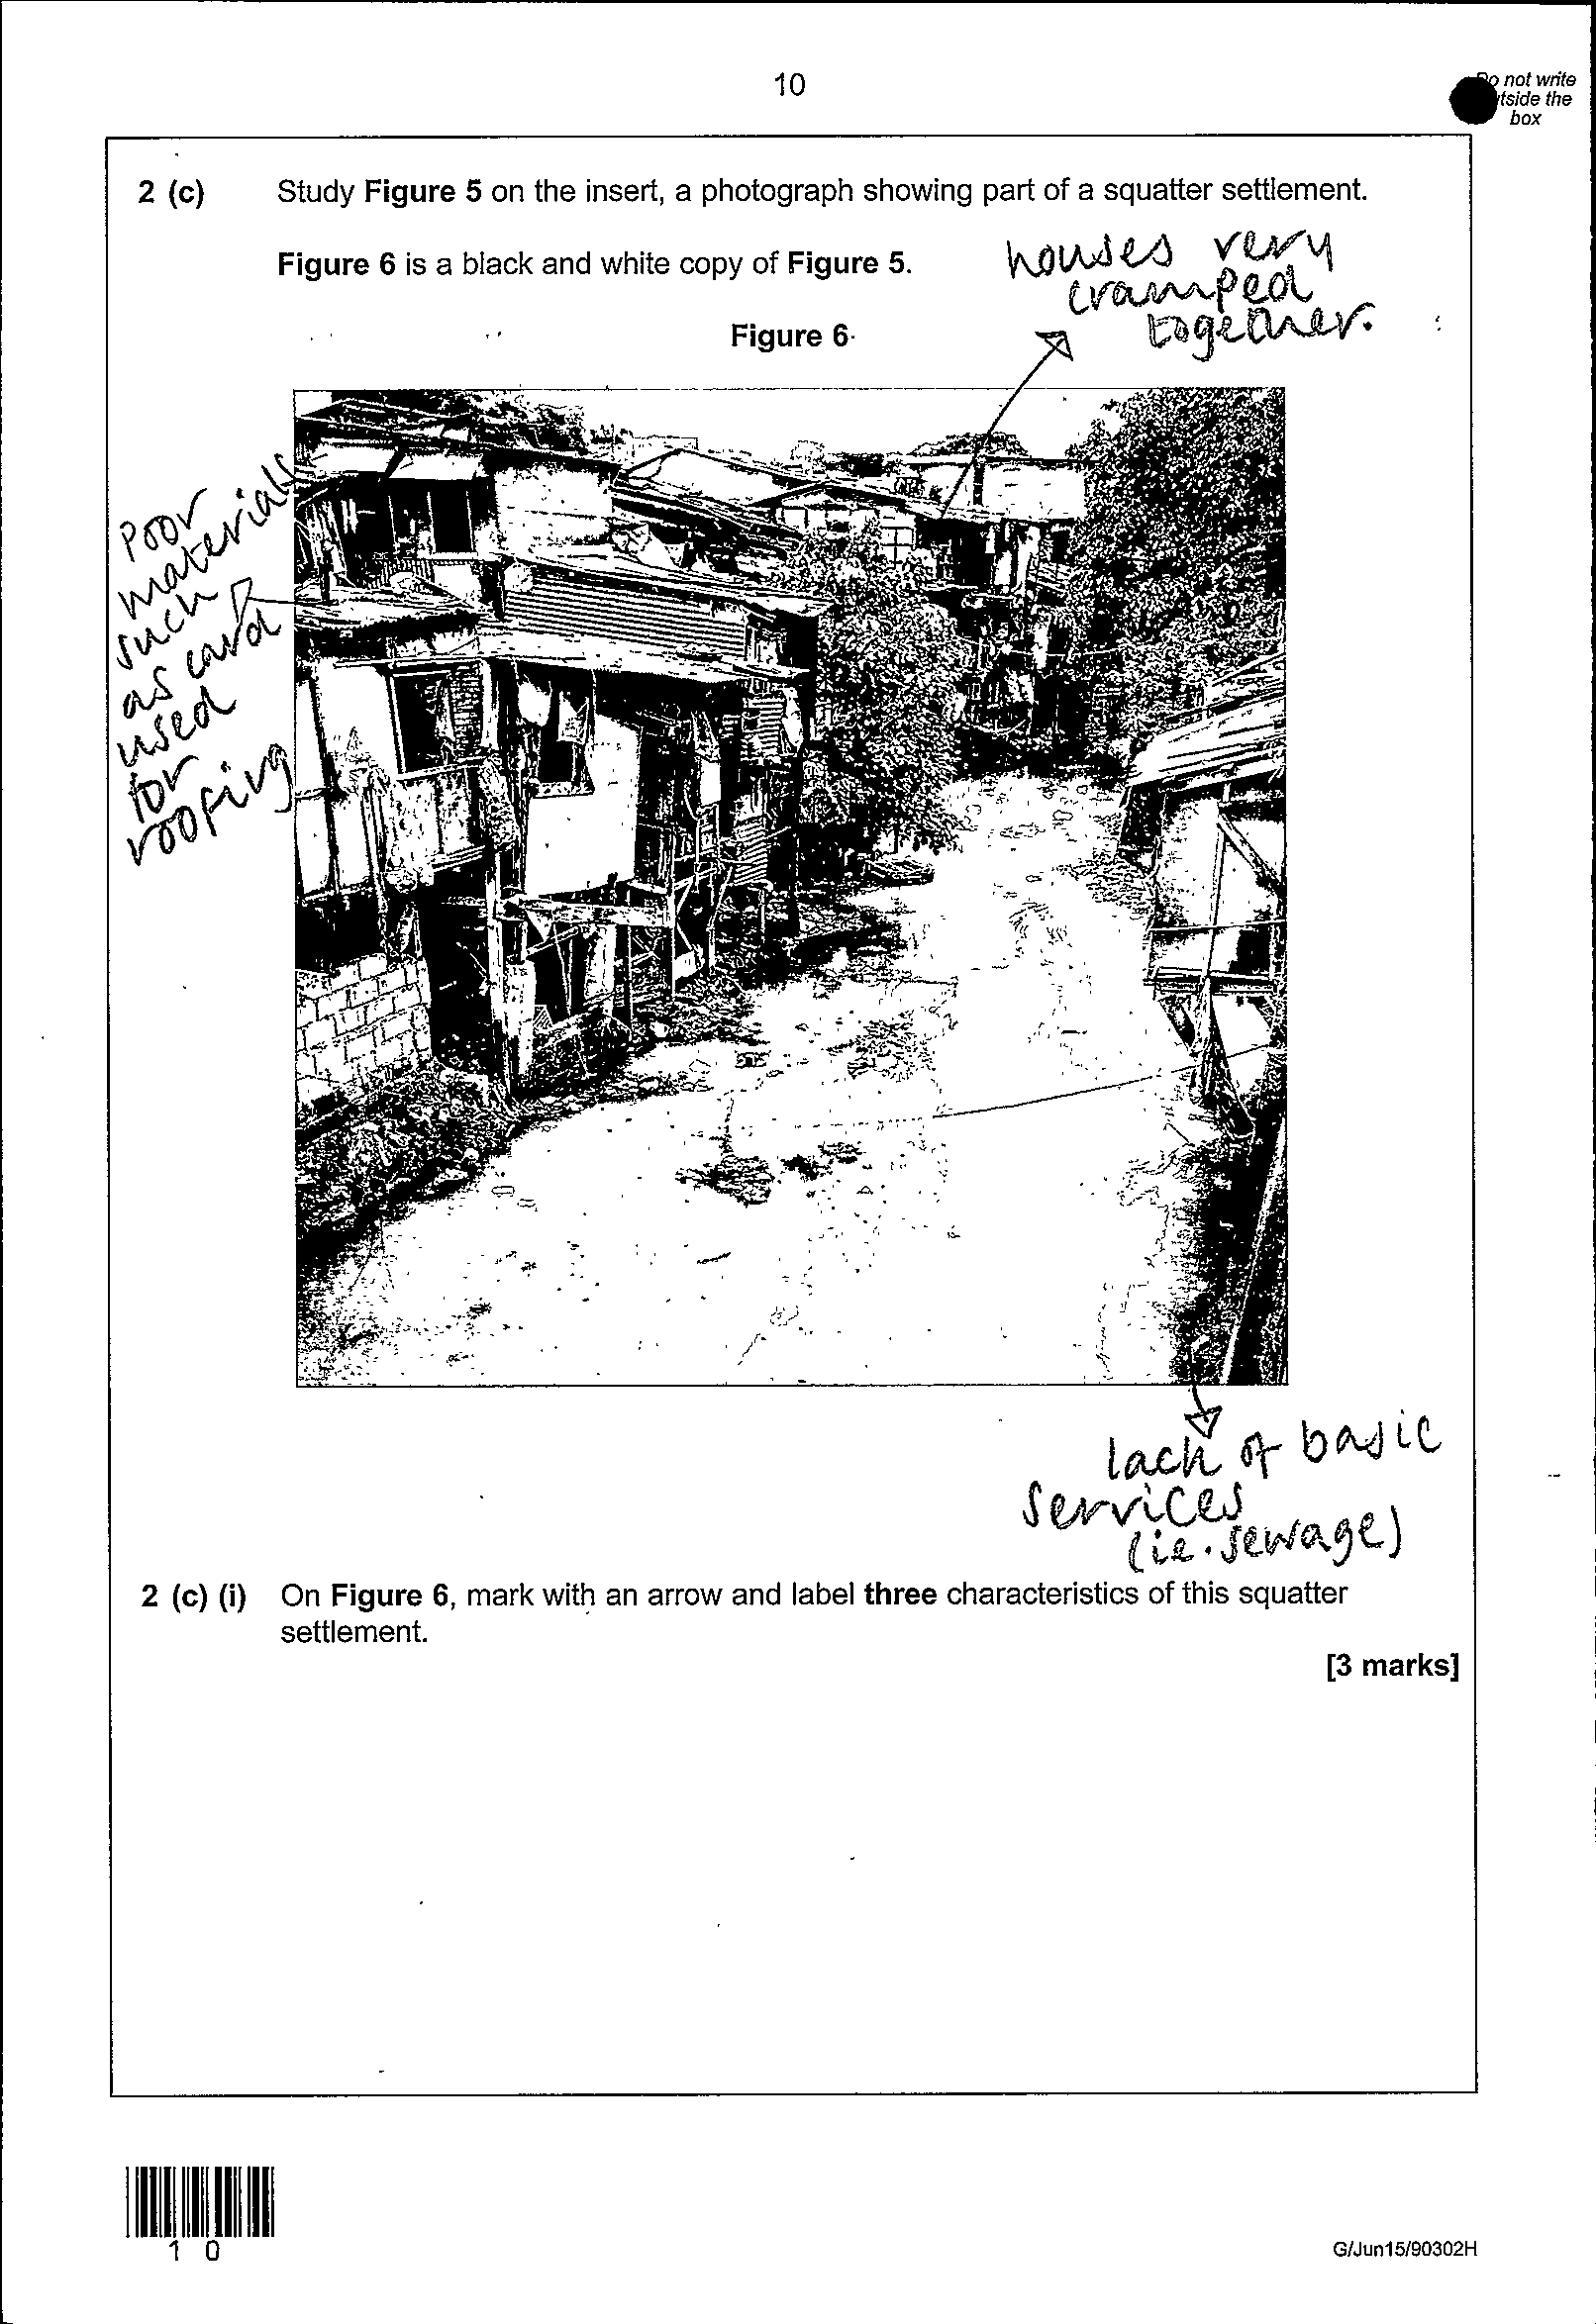 10
Do not write
outside the
box
2 (c) Study Figure 5 on the insert, a photograph showing part of a squatter settlement.
Figure 6 is a black and white copy of Figure 5.
houses very
cramped
together.
Figure 6
Poor
materials
such
as card
used
for
roofing
lack of basic
services
(ie. sewage)
2 (c) (i) On Figure 6, mark with an arrow and label three characteristics of this squatter
settlement.
[3 marks]
1 0
G/Jun15/90302H